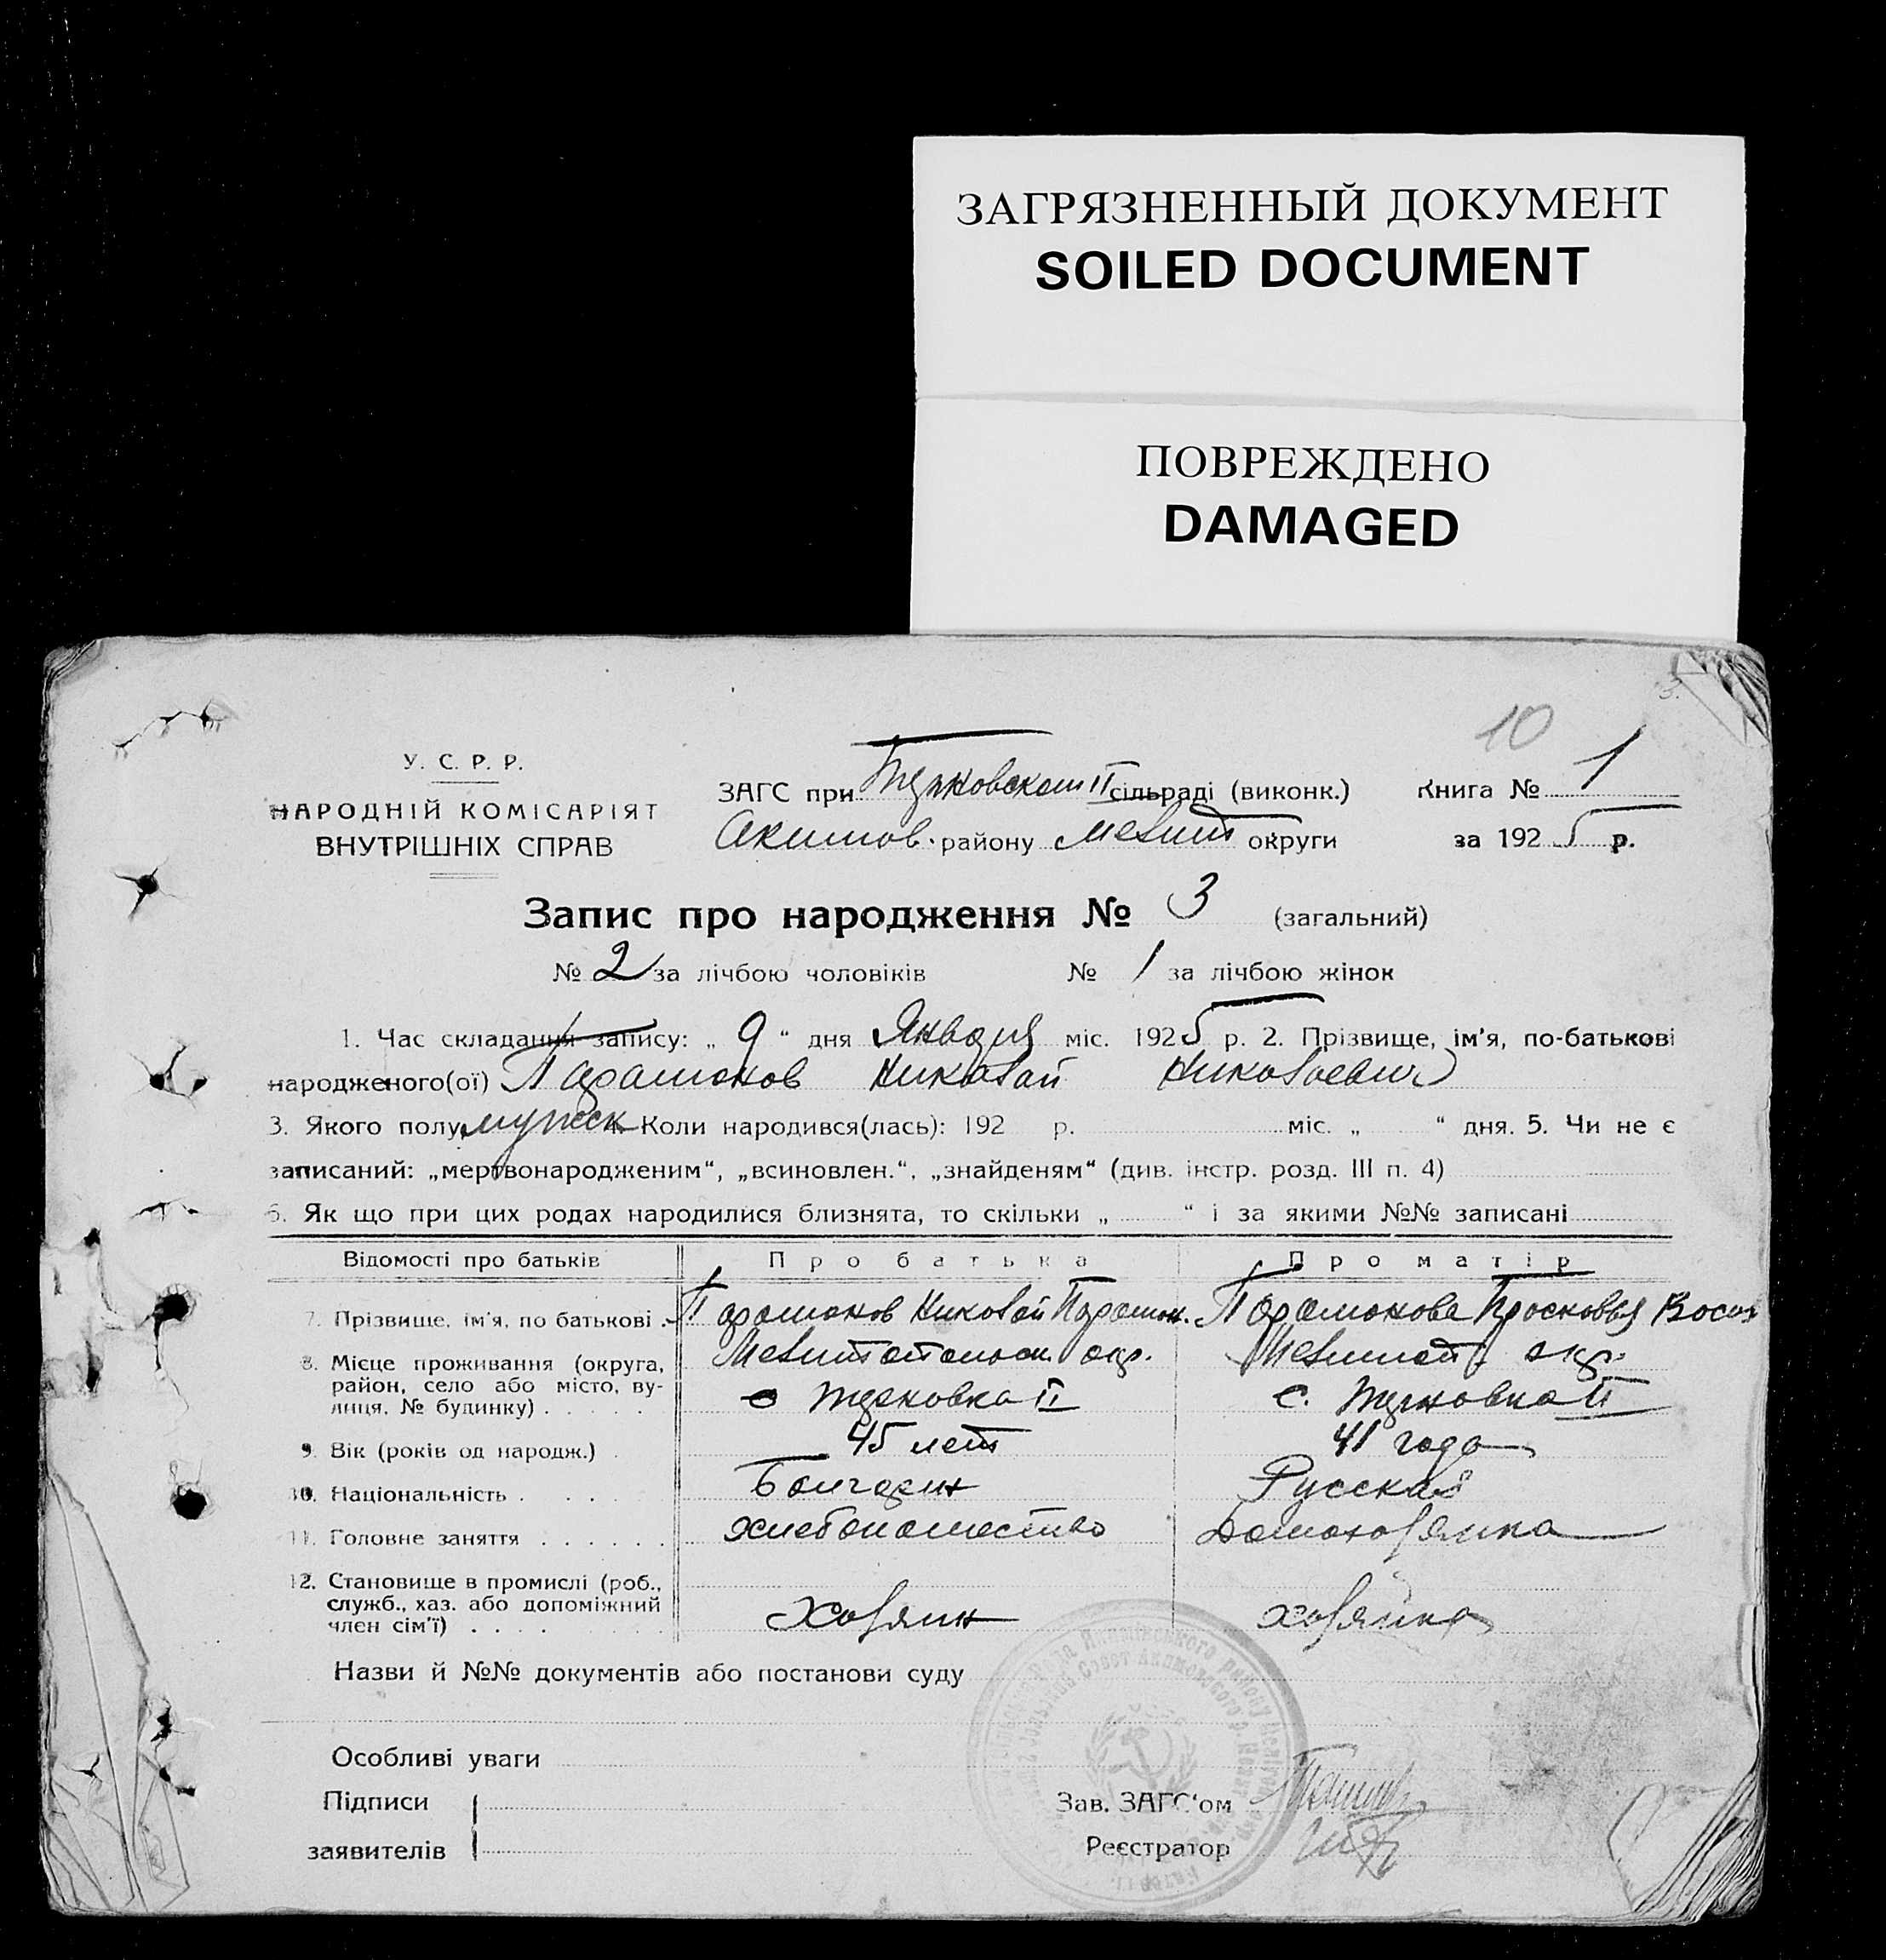 ЗАГРЯЗНЕННЫЙ ДОКУМЕНТ
SOILED DOCUMENT
ПОВРЕЖДЕНО
DAMAGED
10
У. С. Р. Р.
НАРОДНІЙ КОМІСАРІЯТ
ВНУТРІШНІХ СПРАВ
ЗАГС при II сільраді (виконк.) Книга № 1
Акимов. району Мелит округи за 1925 р.
Запис про народження № 3 (загальний)
№ 2 за лічбою чоловіків № 1 за лічбою жінок
1. Час складання запису: „ 9 “ дня Января міс. 1925 р. 2. Прізвище, ім'я, по-батькові
народженого(ої) Парамонов Николай Николаевич
3. Якого полу мужск 4. Коли народився(лась): 192 р. міс. „ “ дня. 5. Чи не є
записаний: „мертвонародженим“, „всиновлен.“, „знайденям“ (див. інстр. розд. III п. 4)
6. Як що при цих родах народилися близнята, то скільки „ “ і за якими №№ записані
Відомості про батьків Про батька Про матір
7. Прізвище, ім'я, по батькові . Парамонов Николай Парамон. Парамонова Просковья
8. Місце проживання (округа, район, село або місто, вулиця, № будинку) . . . . . Мелитопольск. окр. Мелитоп. окр.
с II с. II
9. Вік (років од народж.) . 45 лет 41 года
10. Національність . . . . Болгарин Русская
11. Головне заняття . . . . . . хлебопашество Домохозяйка
12. Становище в промислі (роб., служб., хаз. або допоміжний член сім'ї) . . . . Хозяин хозяйка
Назви й №№ документів або постанови суду
Особливі уваги
Підписи
заявителів
Зав. ЗАГС'ом
Реєстратор